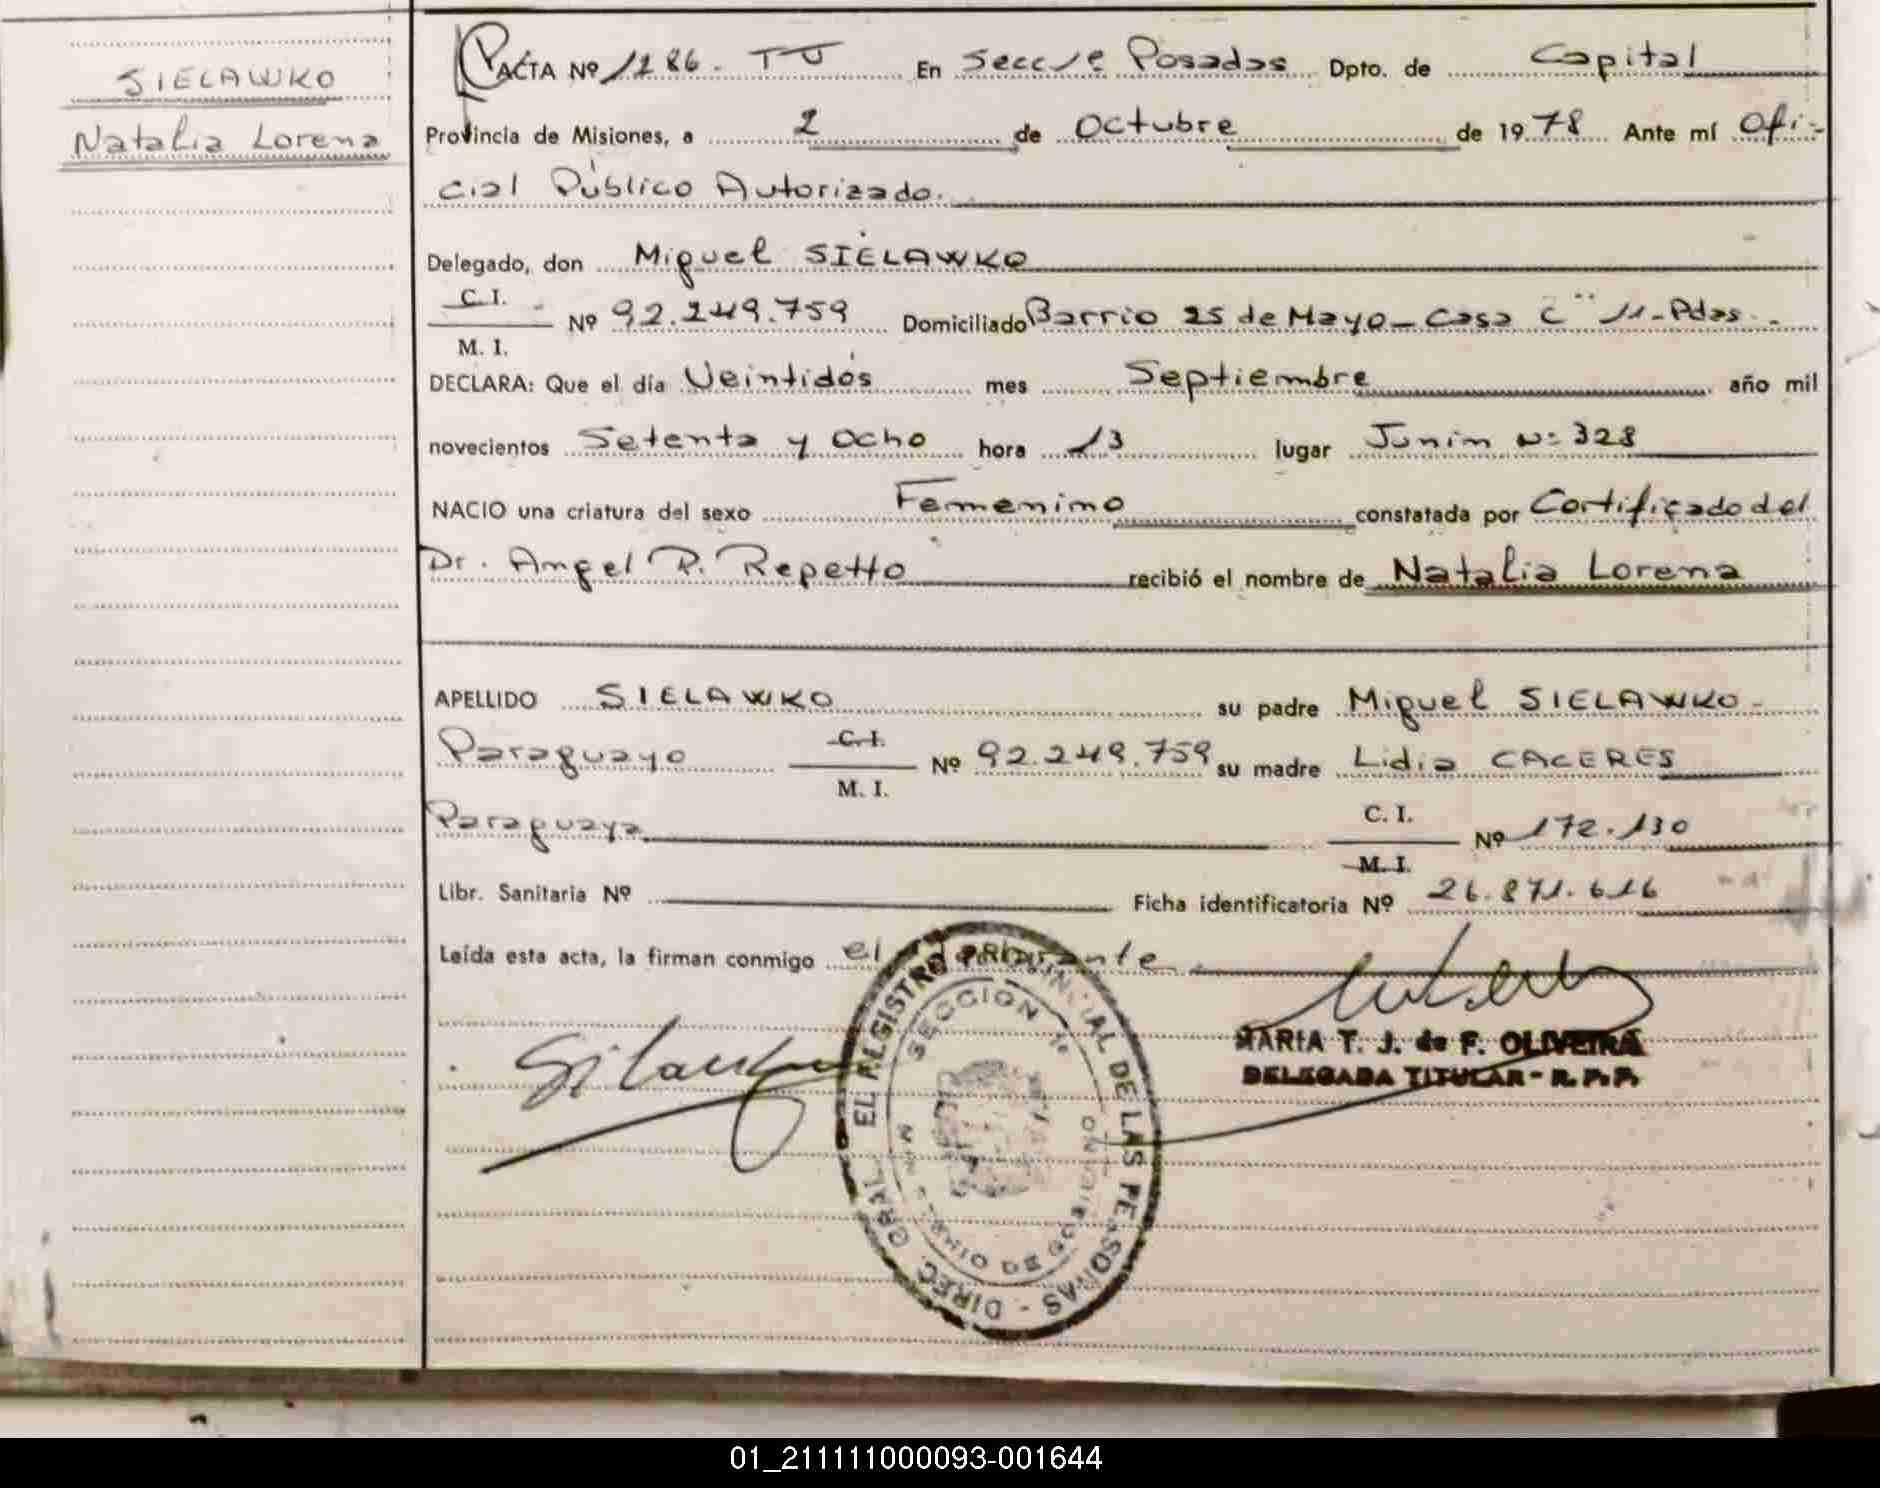 SIELAWKO
Natalia Lorena
ACTA Nº 1286. TJ En Secc 1ª Posadas Dpto. de Capital
Provincia de Misiones, a 2 de Octubre de 1978 Ante mí Ofi-
cial Público Autorizado.
Delegado, don Miguel SIELAWKO
C. I.
M. I.
Nº 92.249.759 Domiciliado Barrio 25 de Mayo - Casa C" 11 - Pdas.
DECLARA: Que el día Veintidós mes Septiembre año mil
novecientos Setenta y Ocho hora 13 lugar Junin Nº 328
NACIO una criatura del sexo Femenino constatada por Certificado del
Dr. Angel R. Repetto recibió el nombre de Natalia Lorena
APELLIDO SIELAWKO su padre Miguel SIELAWKO -
Paraguayo C. I. Nº 92.249.759 su madre Lidia CACERES
M. I.
Paraguaya C. I. Nº 172.130
M. I.
Libr. Sanitaria Nº Ficha identificatoria Nº 26.871.616
Leída esta acta, la firman conmigo el declarante
MARIA T. J. de F. OLIVEIRA
DELEGADA TITULAR - R. P. P.
DIREC. GRAL. EL REGISTRO PROVINCIAL DE LAS PERSONAS -
SECCION 1ª
01_211111000093-001644